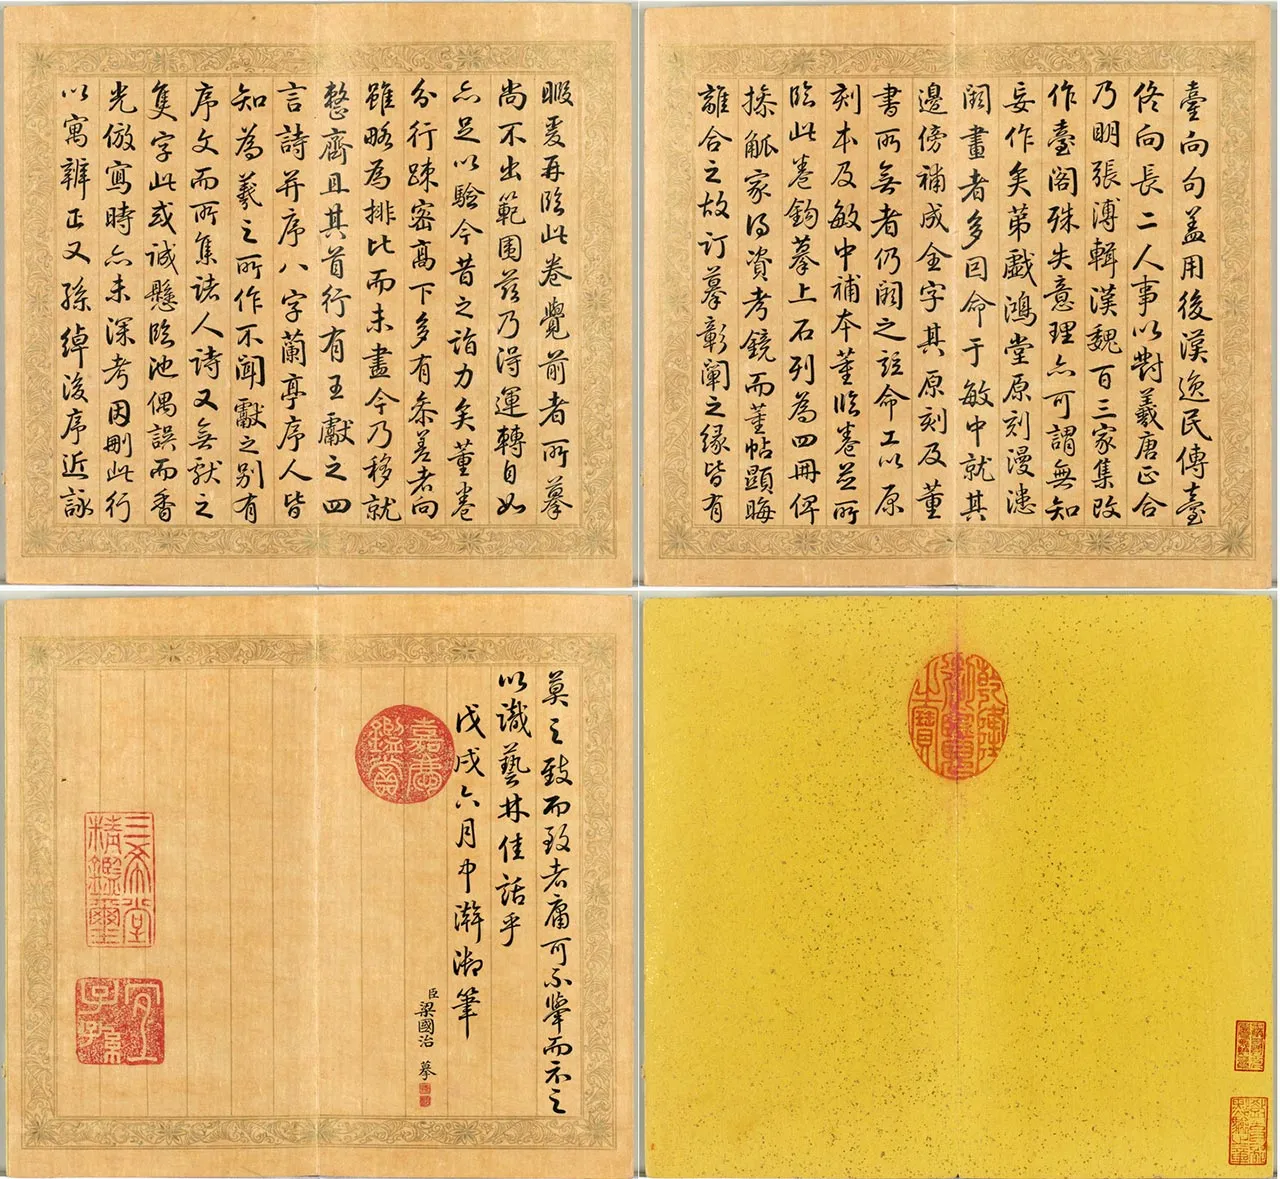 暇爰再臨此卷覺前者所摹
尚不出範圍茲乃得運轉自如
亦足以驗今昔之詣力矣董卷
分行疎密高下多有參差者向
雖略為排比而未盡今乃移就
整齊且其首行有王獻之四
言詩并序八字蘭亭序人皆
知為羲之所作不聞獻之別有
序文而所集諸人詩又無獻之
隻字此或誠懸臨池偶誤而香
光倣寫時亦未深考因刪此行
以寓辨正又孫綽後序近詠
臺向句蓋用後漢逸民傳臺
佟向長二人事以對羲唐正合
乃明張溥輯漢魏百三家集改
作臺閣殊失意理亦可謂無知
妄作矣第戲鴻堂原刻漫漶
闕畫者多因命于敏中就其
邊傍補成全字其原刻及董
書所無者仍闕之並命工以原
刻本及敏中補本董臨卷並所
臨此卷鉤摹上石列為四冊俾
操觚家得資考鏡而董帖顯晦
離合之故訂摹彰闡之緣皆有
莫之致而致者庸可不舉而示之
以識藝林佳話乎
戊戌六月中澣御筆
臣梁國治 摹
嘉慶鑑賞
三希堂精鑑璽
宜子孫
乾隆御覽之寶